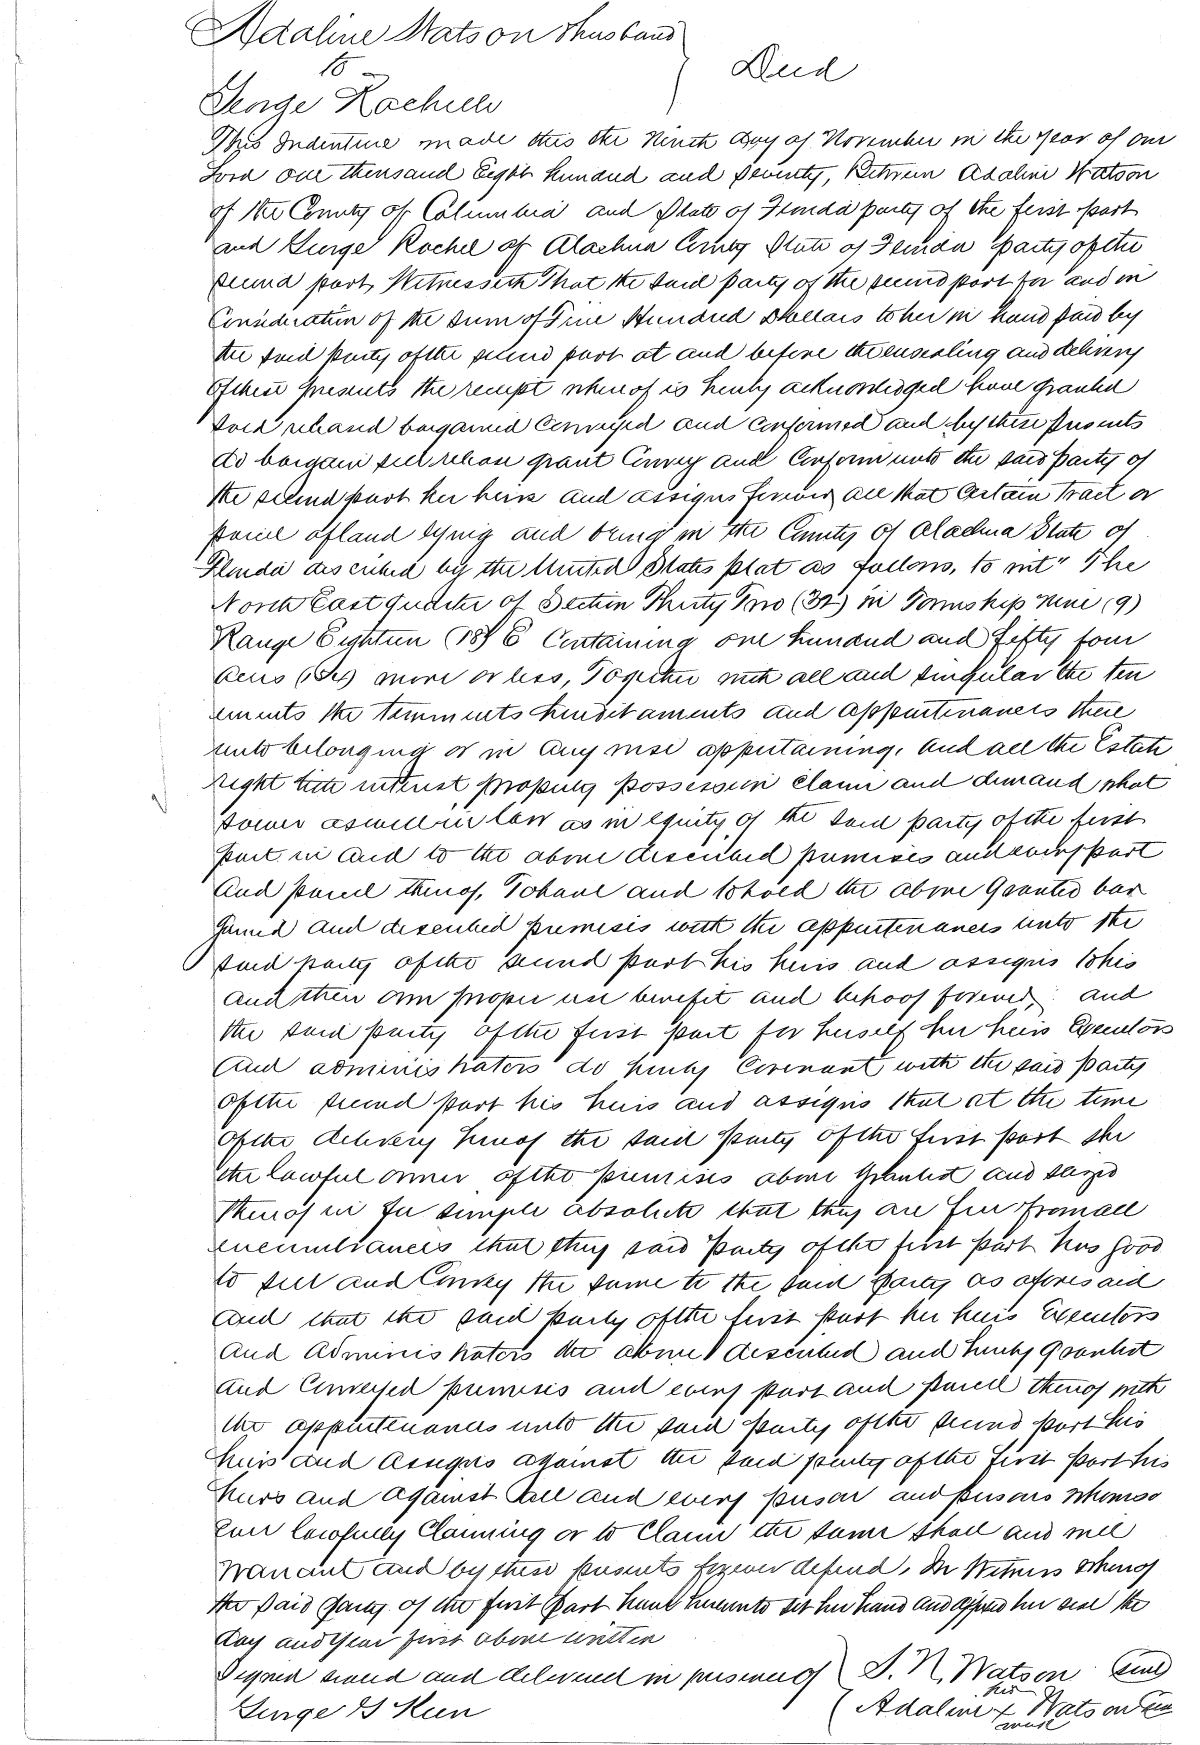 Adaline Watson & husband
to
Deed
George Rochell
This Indenture made this the Ninth day of November in the Year of our
Lord one thousand Eight hundred and seventy, Between Adaline Watson
of the County of Columbia and State of Florida party of the first part
and George Rochel of Alachua County State of Florida party of the
second part, Witnesseth That the said party of the second part for and in
Consideration of the sum of Five Hundred Dollars to her in hand paid by
the said party of the second part at and before the ensealing and delivery
of these presents the receipt whereof is hereby acknowledged have granted
sold released bargained Conveyed and Confirmed and by these presents
do bargain sell release grant Convey and Confirm unto the said party of
the second part her heirs and assigns forever all that Certain tract or
parcel of land lying and being in the County of Alachua State of
Florida described by the United States plat as follows, to wit " The
North East quarter of Section Thirty Two (32) in Township Nine (9)
Range Eighteen (18) E Containing one hundred and fifty four
acres (154) more or less, Together with all and singular the ten
ements the tenements hereditaments and appurtenances there
unto belonging or in any wise appertaining, and all the Estate
right title interest property possession claim and demand what
soever as well in law as in equity of the said party of the first
part. in and to the above described premises and every part
and parcel thereof, To have and to hold the above Granted bar
gained and described premises with the appurtenances unto the
said party of the second part his heirs and assigns to his
and their own proper use benefit and behoof forever, and
the said party of the first part for herself her heirs Executors
and administrators do hereby Covenant with the said party
of the second part his heirs and assigns that at the time
of the delivery hereof the said party of the first part she
the lawful owner of the premises above Granted and seized
thereof in fee simple absolute that they are free from all
encumbrances that they said party of the first part has good
to sell and Convey the same to the said party as aforesaid
and that the said party of the first part her heirs Executors
and Administrators the above described and hereby granted
and Conveyed premises and every part and parcel thereof with
the appurtenances unto the said party of the second part his
heirs and assigns against the said party of the first part his
heirs and against all and every person and persons whomso
ever lawfully Claiming or to Claim the same shall and will
warrant and by these presents forever defend, In Witness whereof
the said party of the first part have hereunto set her hand and affixed her seal the
day and Year first above written
Signed sealed and delivered in presence of
S. N. Watson (seal)
George G Keen
Adaline her x mark Watson (seal)